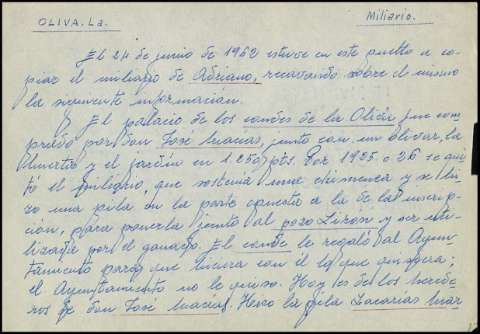 OLIVA. La. Miliario.
El 24 de junio de 1962 estuve en este pueblo a co-
piar el miliario de Adriano, recavando sobre el mismo
la siguiente información.
El palacio de los condes de la Oliva fue com-
prado por don José Macías, junto con un olivar, la
huerta y el jardín en 1250 pts. Por 1925 o 26 se qui-
tó el miliario, que sostenía una chimenea y se hi-
zo una pila en la parte opuesta a la de la inscrip-
ción, para ponerla junto al pozo Lirón y ser uti-
lizada por el ganado. El conde le regaló al Ayun-
tamiento para que hiciera con él lo que quisiera;
el Ayuntamiento no le quiso. Hoy es de los herede-
ros de don José Macías. Hizo la pila Zacarías Mar